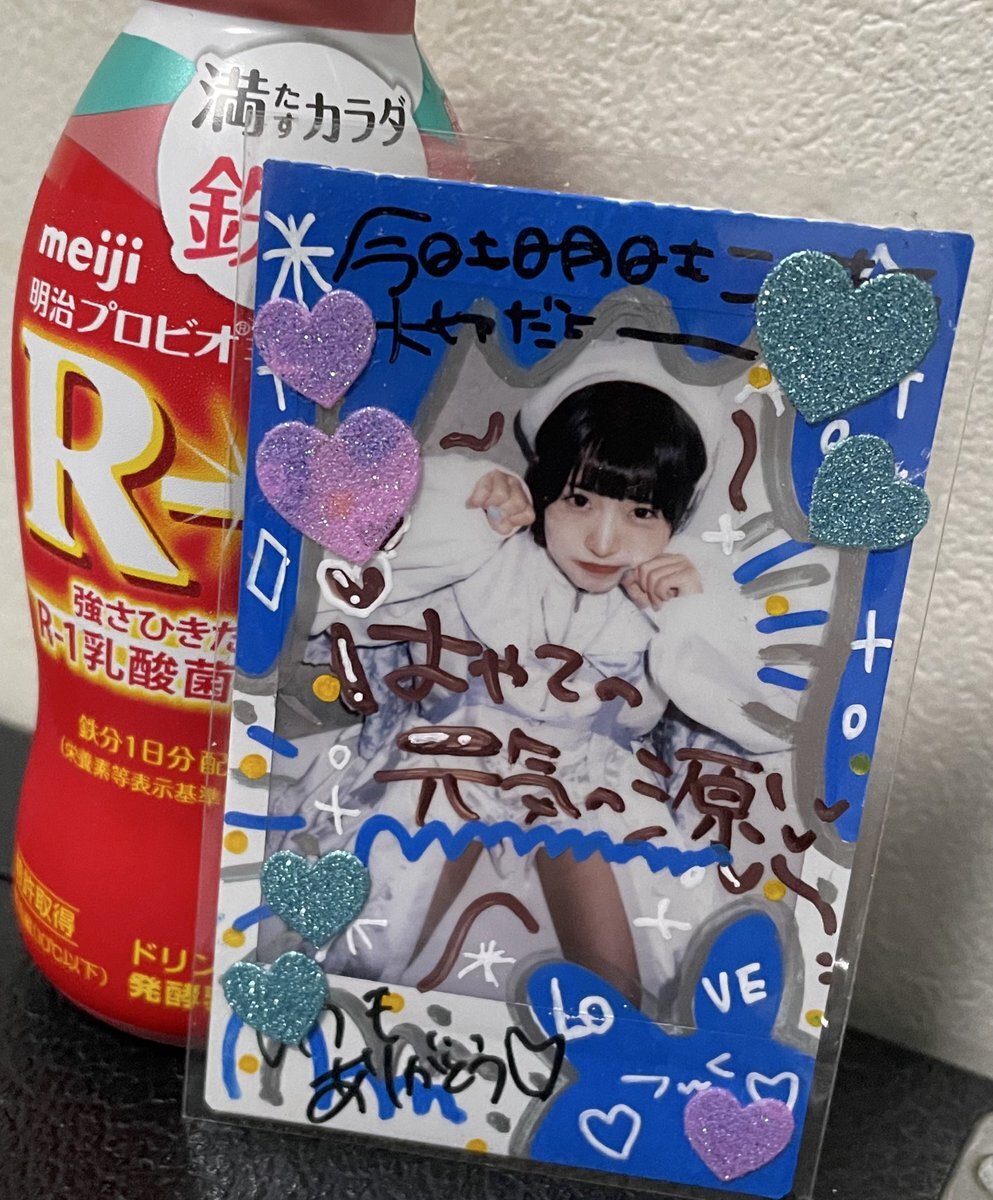 満たすカラダ
鉄
meiji
明治プロビオ
R-
強さひきだ
R-1乳酸菌
鉄分1日分配
(栄養素等表示基準
許取得
10℃以下)
ドリン
発酵
今日も明日も
だよー
はやての
元気の源
LOVE
いつも
ありがとう♡